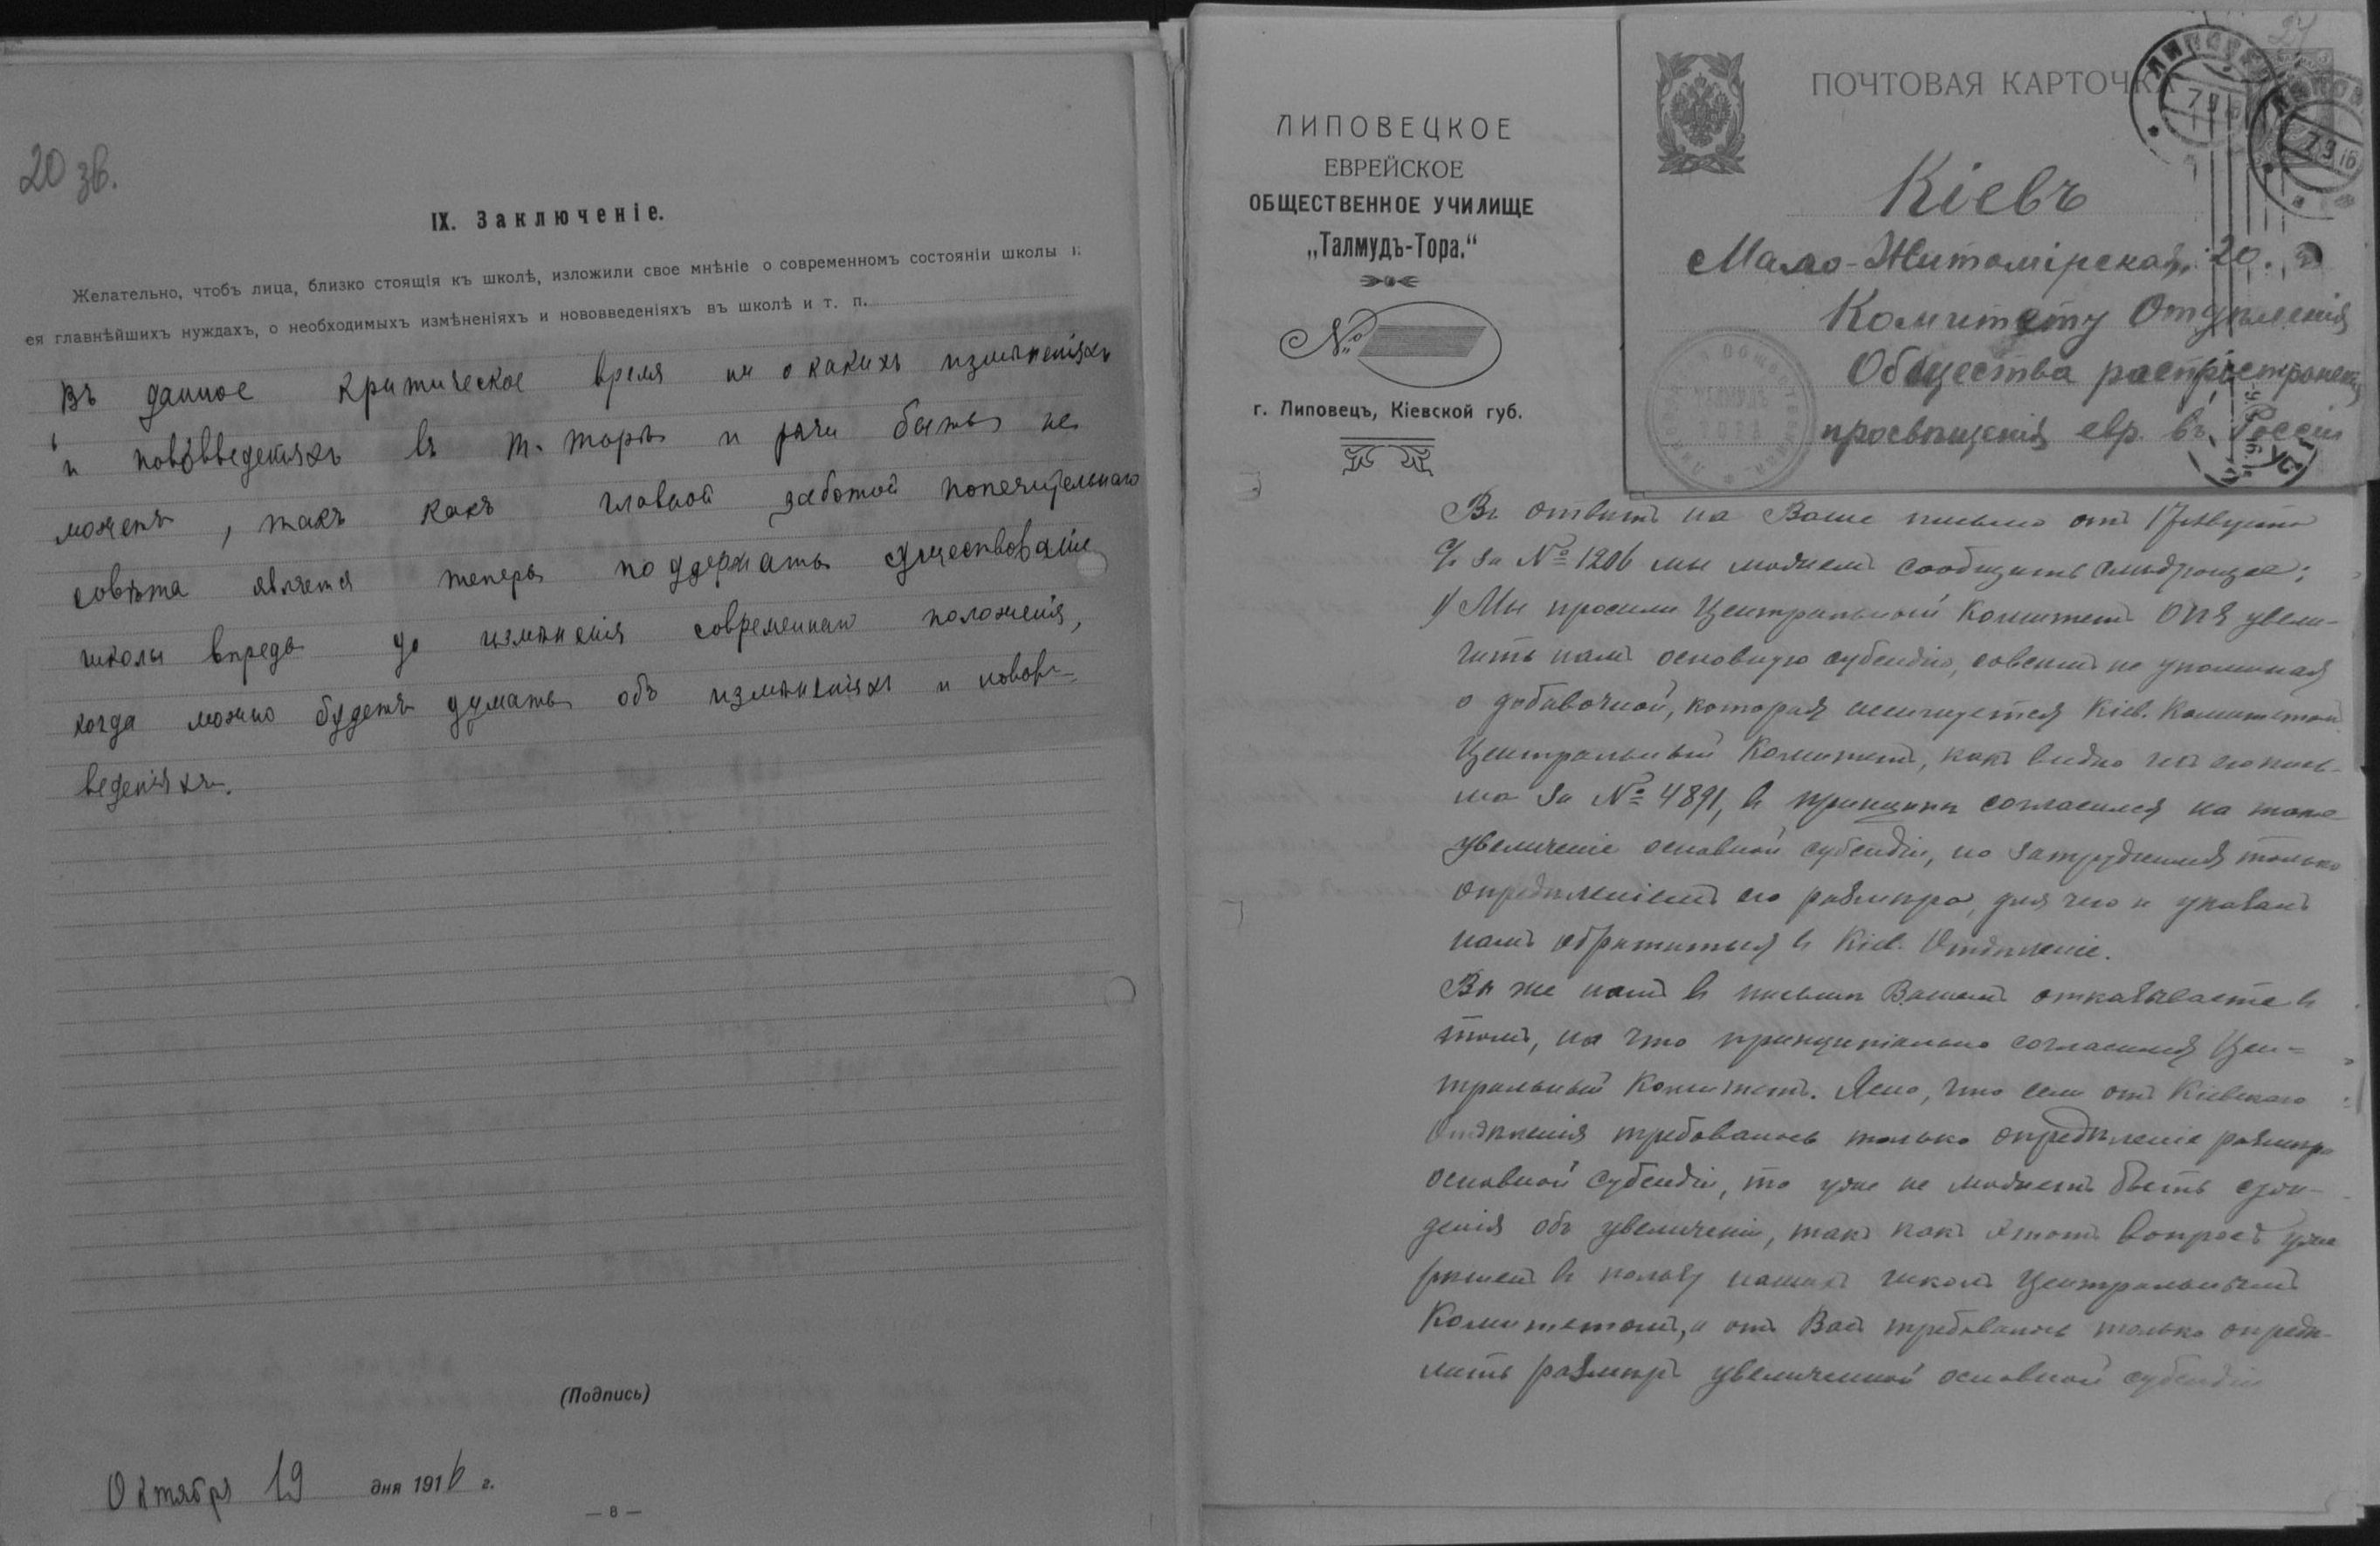 20 зв.
IX. Заключеніе.
Желательно, чтобъ лица, близко стоящія къ школѣ, изложили свое мнѣніе о современномъ состояніи школы и
ея главнѣйшихъ нуждахъ, о необходимыхъ измѣненіяхъ и нововведеніяхъ въ школѣ и т. п.
Въ данное критическое время ни о какихъ измѣненіяхъ
и нововведеніяхъ въ т. торѣ и рѣчи быть не
можетъ, такъ какъ главной заботой попечительнаго
совѣта является теперь поддержать существованіе
школы впредь до измѣненія современнаго положенія,
когда можно будетъ думать объ измѣненіяхъ и новов-
веденіяхъ.
(Подпись)
Октября 19 дня 1916 г.
— 8 —
ЛИПОВЕЦКОЕ
ЕВРЕЙСКОЕ
ОБЩЕСТВЕННОЕ УЧИЛИЩЕ
„Талмудъ-Тора."
№
г. Липовецъ, Кіевской губ.
ПОЧТОВАЯ КАРТОЧКА
Кіевъ
Мало-Житомірская, 20.
Комитету Отдѣленія
Общества распространенія
просвѣщенія евр. въ Россіи
Въ отвѣтъ на Ваше письмо отъ 17 Августа
с/г за № 1206 мы можемъ сообщить слѣдующее:
1) Мы просили Центральный Комитетъ ОПЕ увели-
чить намъ основную субсидію, совсѣмъ не упоминая
о добавочной, которая ассигнуется Кіев. Комитетомъ.
Центральный Комитетъ, какъ видно изъ его пись-
ма за № 4891, въ принципѣ согласился на такое
увеличеніе основной субсидіи, но затруднился только
опредѣленіемъ его размѣра, для чего и указалъ
намъ обратиться въ Кіев. Отдѣленіе.
Вы же намъ въ письмѣ Вашемъ отказываете въ
томъ, на что принципіально согласился Цен-
тральный Комитетъ. Ясно, что если отъ Кіевскаго
Отдѣленія требовалось только опредѣленіе размѣра
основной субсидіи, то уже не можетъ быть суж-
денія объ увеличеніи, такъ какъ этотъ вопросъ уже
рѣшенъ въ пользу нашихъ школъ Центральнымъ
Комитетомъ, и отъ Васъ требовалось только опредѣ-
лить размѣръ увеличенной основной субсидіи